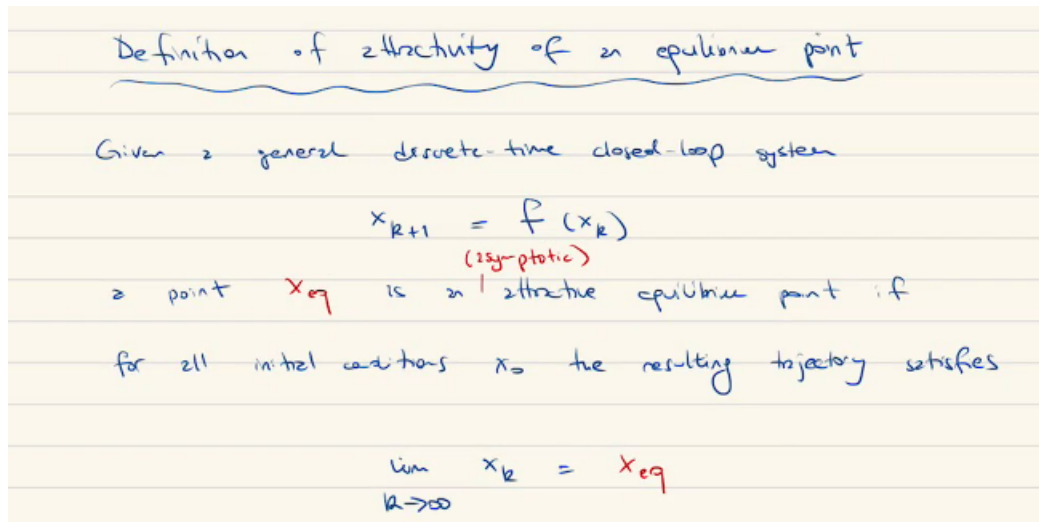 Definition of attractivity of an equilibrium point
Given a general discrete-time closed-loop system
x_{k+1} = f(x_k)
(asymptotic)
a point x_eq is an attractive equilibrium point if
for all initial conditions x_0 the resulting trajectory satisfies
lim x_k = x_eq
k→∞